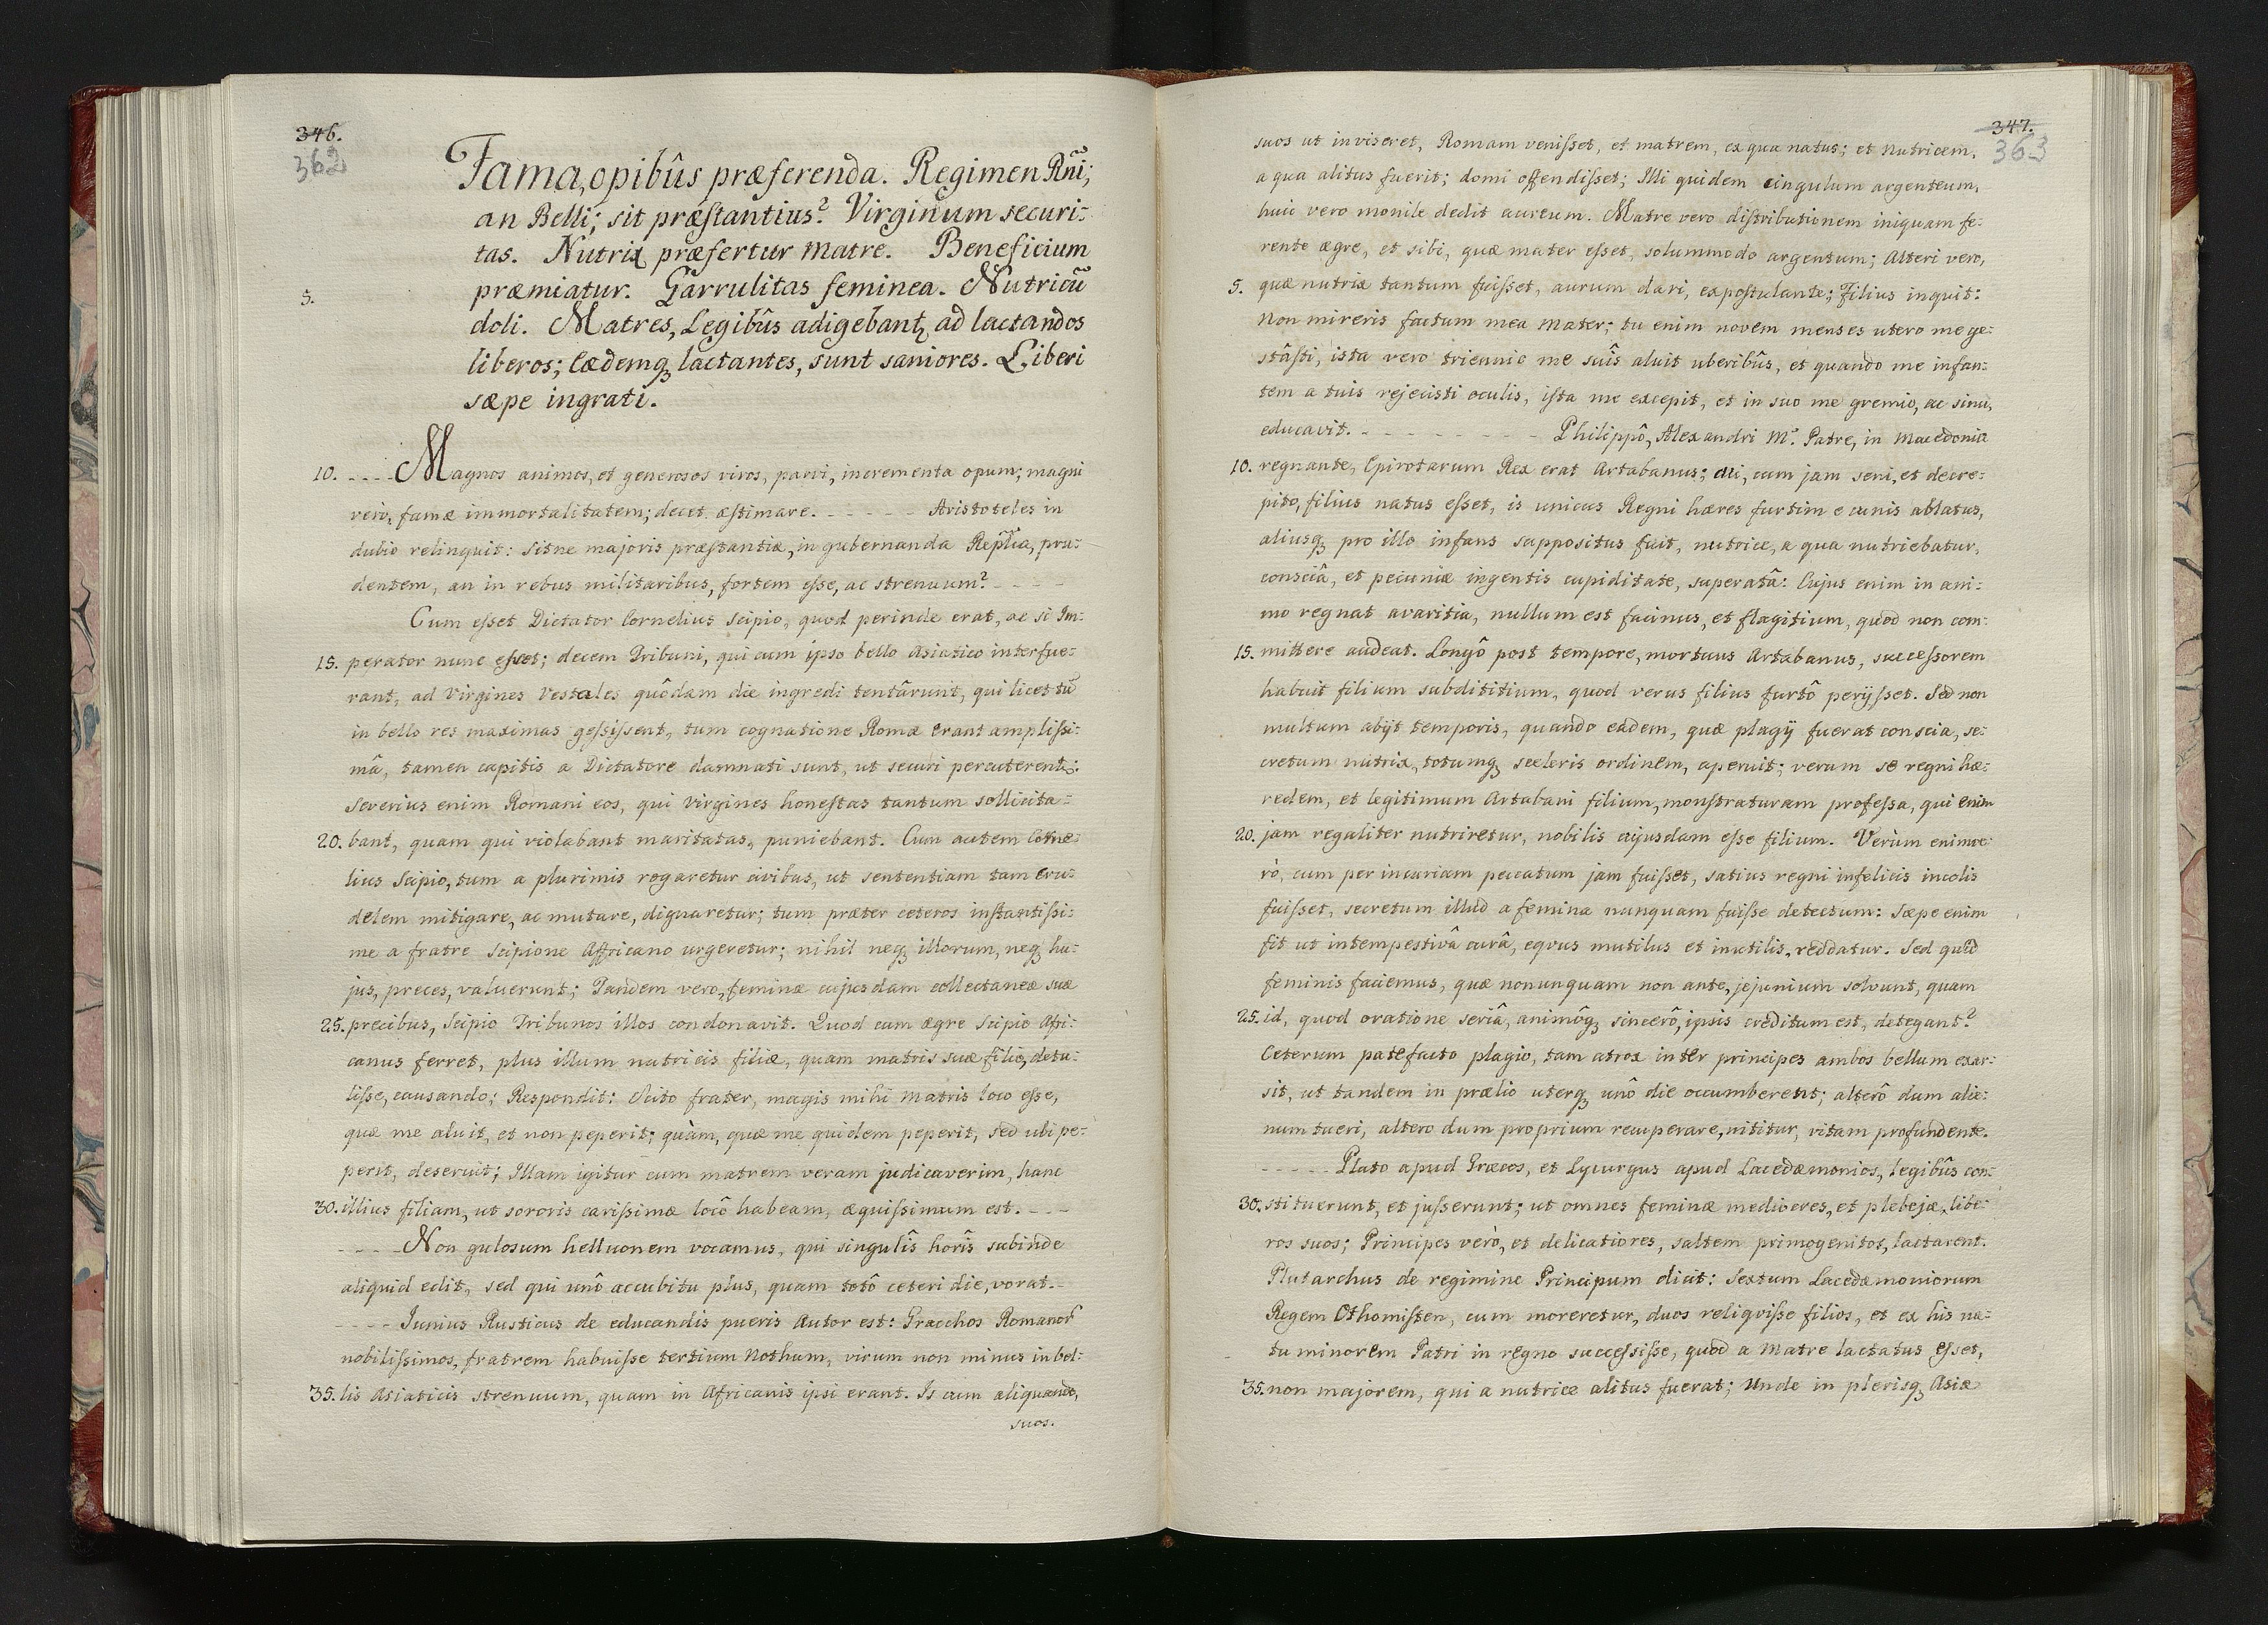 346.
362
Fama, opibûs præferenda. Regimen Rñi;
an Belli; sit præſtantius? Virginum securi:
tas. Nutrix præfertur matre. Beneficium
præmiatur. Garrulitas feminea. Nutricũ
5.
doli. Matres, Legibûs adigebantꝫ ad lactandos
liberos; Eædemqꝫ lactantes, sunt saniores. Liberi
sæpe ingrati.
10. ---- Magnos animos, et generosos viros, parvi, incrementa opum; magni
vero, famæ immortalitatem; decet æſtimare. ----- Aristoteles in
dubio relinquit: Sitne majoris præſtantiæ, in gubernanda Rep̃lĩa, pru:
dentem, an in rebus militaribus, fortem eſse, ac strenuum? ----
Cum eſset Dictator Cornelius Scipio, quod perinde erat, ac si Im:
15. perator nunc eſset; decem Tribuni, qui cum ipso bello Asiatico interfue:
rant, ad Virgines Vestales quôdam die ingredi tentârunt, qui licet tũ
in bello res maximas geſsiſsent, tum cognatione Romæ erant ampliſsi:
mâ, tamen capitis a Dictatore damnati sunt, ut securi percuterentꝫ:
Severius enim Romani eos, qui Virgines honeſtas tantum sollicita:
20. bant, quam qui violabant maritatas, puniebant. Cum autem Corne:
lius Scipio, tum a plurimis rogaretur civibus, ut sententiam tam cru:
delem mitigare, ac mutare, dignaretur; tum præter ceteros inſtantiſsi:
me a fratre Scipione Affricano urgeretur; nihil neqꝫ illorum, neqꝫ hu:
jus, preces, valuerunt; Tandem vero, feminæ cujusdam collectaneæ suæ
25. precibus, Scipio Tribunos illos condonavit. Quod cum ægre Scipio Afri:
canus ferret, plus illum nutricis filiæ, quam matris suæ filio, detu:
liſse, causando; Respondit: Scito frater, magis mihi matris loco eſse,
quæ me aluit, et non peperit; quàm, quæ me quidem peperit, sed ubi pe:
perit, deseruit; Illam igitur cum matrem veram judicaverim, hanc
30. illius filiam, ut sororis cariſsimæ locô habeam, æquiſsimum est. ---
---- Non gulosum helluonem vocamus, qui singulîs horîs subinde
aliquid edit, sed qui unô accubitu plus, quam totô ceteri die, vorat.--
---- Junius Rusticus de educandis pueris Autor est: Gracchos Romanoř
nobiliſsimos, fratrem habuiſse tertium Nothum, virum non minus in bel:
35. lis Asiaticis strenuum, quam in Africanis ipsi erant. Is cum aliquando,
suos.
347.
363
suos ut inviseret, Romam veniſset, et matrem, ex qua natus; et Nutricem,
a qua alitus fuerit; domi offendiſset; Illi quidem cingulum argenteum,
huic vero monile dedit aureum. Matre vero diſtributionem iniquam fe:
rente ægre, et sibi, quæ mater eſset, solummodo argentum; Alteri vero,
5. quæ nutrix tantum fuiſset, aurum dari, expoſtulante; Filius inquit:
Non mireris factum mea Mater; tu enim novem menses utero me ge:
stâſti, ista vero triennio me suîs aluit uberibûs, et quando me infan:
tem a tuis rejecisti oculis, iſta me excepit, et in suo me gremio, ac sinu,
educavit. --------- Philippô, Alexandri M: Patre, in Macedonia
10. regnante, Epirotarum Rex erat Artabanus; cui, cum jam seni, et decre:
pito, filius natus eſset, is unicus Regni hæres furtim e cunis ablatus,
aliusqꝫ pro illo infans suppositus fuit, nutrice, a qua nutriebatur,
consciâ, et pecuniæ ingentis cupiditate, superatâ: Cujus enim in ani:
mo regnat avaritia, nullum est facinus, et flagitium, quod non com:
15. mittere audeat. Longô post tempore, mortuus Artabanus, succeſsorem
habuit filium subdititium, quod verus filius furtô perijſset. Sed non
multum abijt temporis, quando eadem, quæ plagij fuerat conscia, se:
cretum nutrix, totumqꝫ sceleris ordinem, aperuit; verum se regni hæ:
redem, et legitimum Artabani filium, monſtraturam profeſsa, qui enim
20. jam regaliter nutriretur, nobilis cujusdam eſse filium. Verùm enimve:
rò, cum per incuriam peccatum jam fuiſset, satius regni infelicis incolis
fuiſset, secretum illud a femina nunquam fuiſse detectum: Sæpe enim
fit ut intempestivâ curâ, eqvus mutilus et inutilis, reddatur. Sed quid
feminis faciemus, quæ nonunquam non ante, jejunium solvunt, quam
25. id, quod oratione seriâ, animôqꝫ sincerô, ipsis creditum est, detegant?
Ceterum patefacto plagio, tam atrox inter principes ambos bellum exar:
sit, ut tandem in prælio uterqꝫ unô die occumberent; alterô dum alie:
num tueri, altero dum proprium recuperare, nititur, vitam profundente.
----- Plato apud Græcos, et Lycurgus apud Lacedæmonios, legibûs con:
30. stituerunt, et juſserunt; ut omnes feminæ mediocres, et plebejæ, libe:
ros suos; Principes verò, et delicatiores, saltem primogenitos, lactarent.
Plutarchus de regimine Principum dicit: Sextum Lacedæmoniorum
Regem Othomiſten, cum moreretur, duos reliqviſse filios, et ex his na:
tu minorem Patri in regno succeſsiſse, quod a Matre lactatus eſset,
35. non majorem, qui a nutrice alitus fuerat; Unde in plerisqꝫ Asiæ